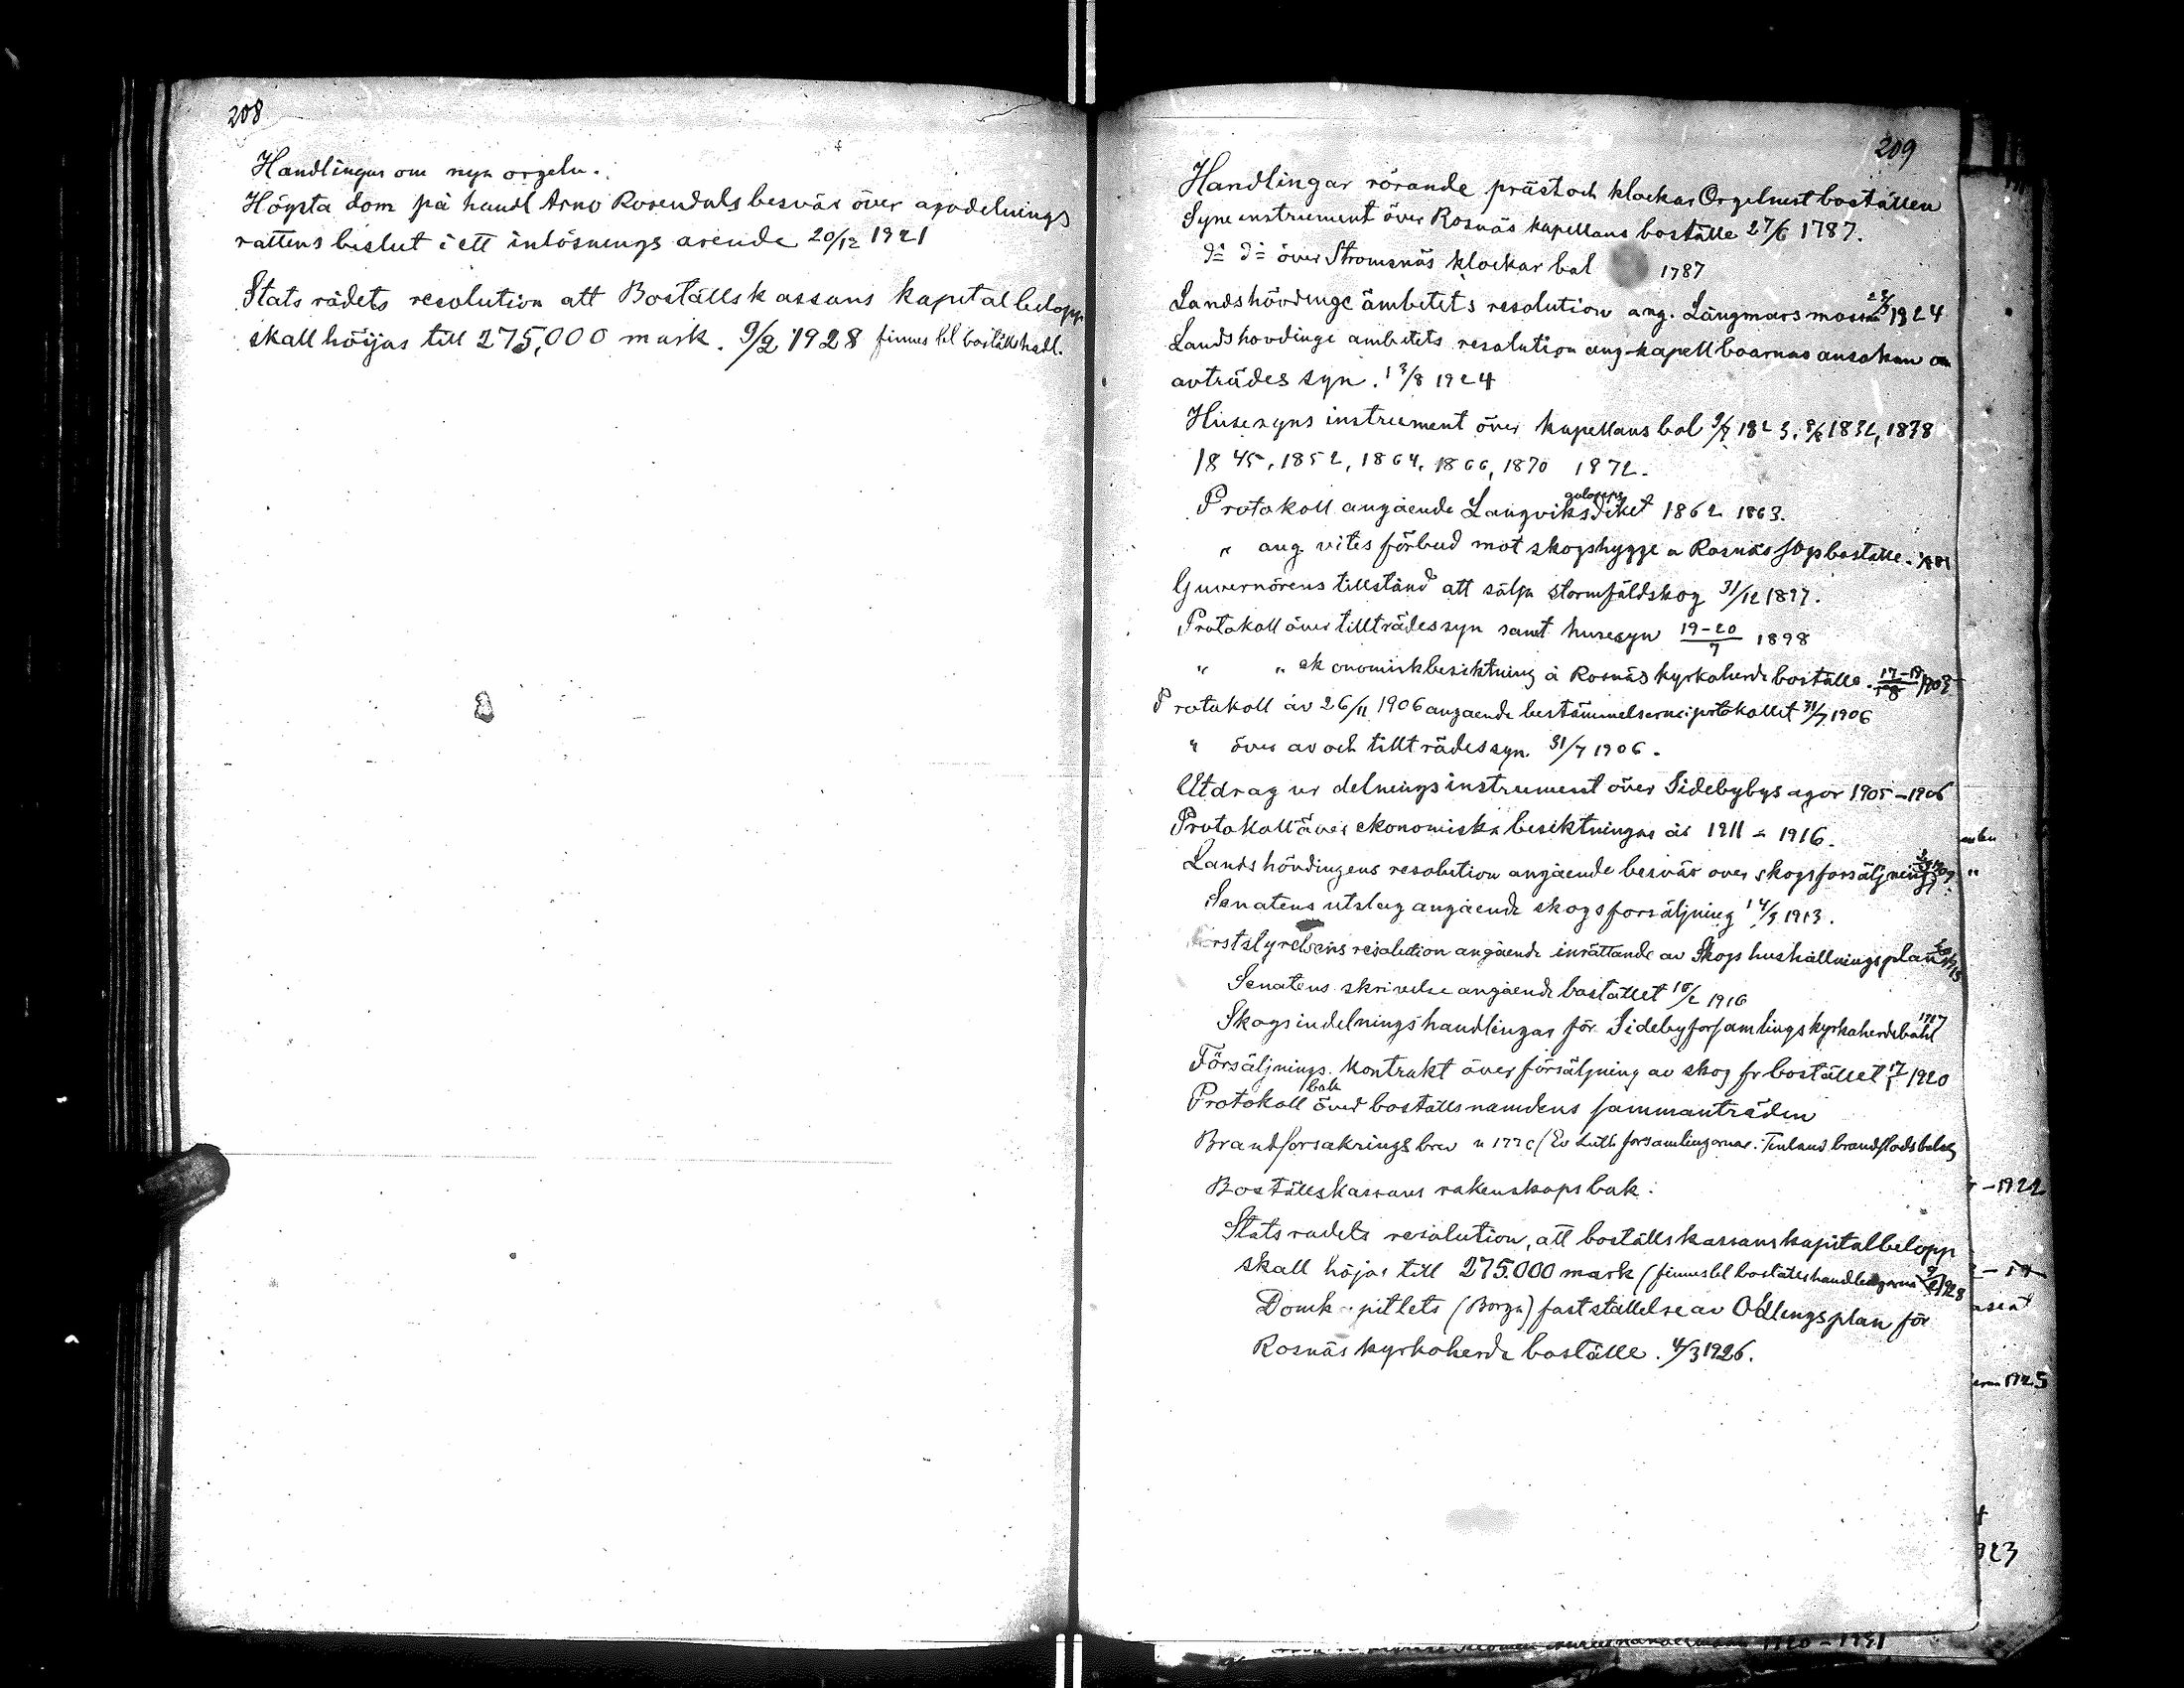 208
Handlingar om nya orgeln.
Högsta dom på handl Arno Rosendals besvär över ägodelnings
rättens beslut i ett inlösnings ärende 20/12 1921
Stats rådets resolution att Boställskassans kapitalbelopp
skall höijas till 275,000 mark. 9/2 1928 finnes bl boställshadl.
209
Handlingar rörande präst och klockar Orgelnist boställen
Syneinstrument över Rosnäs kapellans boställe 27/6 1787.
d:o d:o över Stromsnäs klockar bol 1787
Landshövdinge ämbetets resolution ang. Långmars 1924
Landshövdinge ambetets resolution ang kapellboarnas ansökan om
avträdes syn. 13/8 1924
Husesyns instrument över kapellans bol 9/7 1823, 8/6 1832, 1838
1845, 1852, 1864, 1866, 1870 1872.
Protokoll angående Långviksdiket 1862 1863.
" ang. vites förbud mot skogshygge a Rosnäs boställe.
Guvernörens tillstånd att sälja stormfäldskog 31/12 1897.
Protokoll över tillträdessyn samt husesyn 19-20/7 1898
" " ekonomiskbesiktning å Rosnäs kyrkoherde boställe. 17-19/8
Protokoll av 26/11 1906 angaende bestämmelserna i protokollet 31/7 1906
" över av och tillträdessyn. 31/7 1906.
Utdrag ur delningsinstrument över Sidebybys ägor 1905-1906
Protokoll över ekonomiska besiktningar år 1911 - 1916.
Landshövdingens resolution angående besvär over skogsforsäljning
Senatens utslag angående skogsforsäljning 14/3 1913.
Forststyrelsens resolution angående inrättande av Skogs hushållningsplan
Senatens skrivelse angående bostället 18/2 1916
Skogsindelningshandlingar för Sidebyforsamlings kyrkoherdeboställ 1917
Försäljnings. Kontrakt över försäljning av skog fr bostället 17/1 1920
Protokoll bok över boställsnämdens sammanträden
Brandforsakrings brev n 177 c/Ev Luth forsamlingarnas i Finland brandstodsbolag
Boställskassans räkenskapsbok.
Statsradets resolution, att boställskassans kapitalbelopp
skall höjas till 275.000 mark (finnes bl boställshandlingarna 9/2 1928
Domkapitlets (Borgå) fastställelse av Odlingsplan för
Rosnäs kyrkoherde boställe. 4/3 1926.
-1922
1925
923
1920-1931